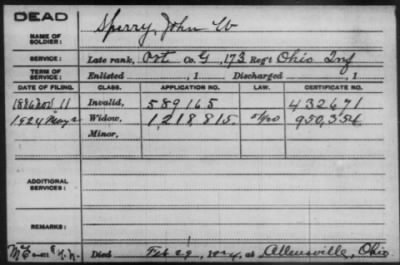 DEAD
NAME OF SOLDIER: Sperry, John W
SERVICE: Late rank, Pvt Co. G, 173 Reg't Ohio Inf
TERM OF SERVICE: Enlisted , 1 Discharged , 1
DATE OF FILING. CLASS. APPLICATION NO. LAW. CERTIFICATE NO.
1886 Nov. 11 Invalid, 589165 432671
1924 May 2 Widow, 1,218,815 950,354
Minor,
ADDITIONAL SERVICES:
REMARKS:
Died Feb 29, 1924, at Allensville, Ohio